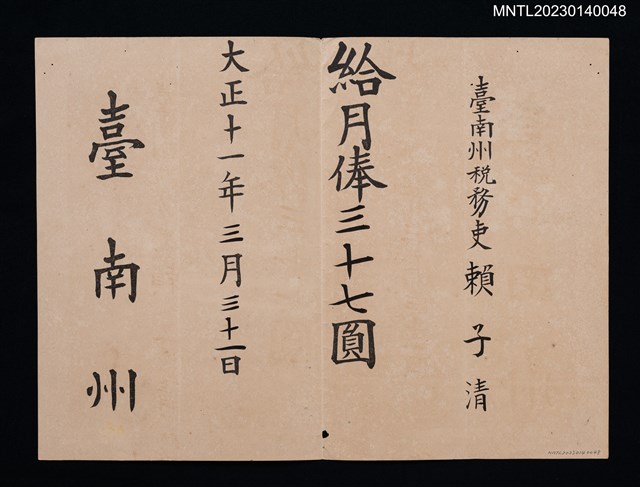 MNTL20230140048
臺南州税務吏 賴子清
給月俸三十七圓
大正十一年三月三十一日
臺南州